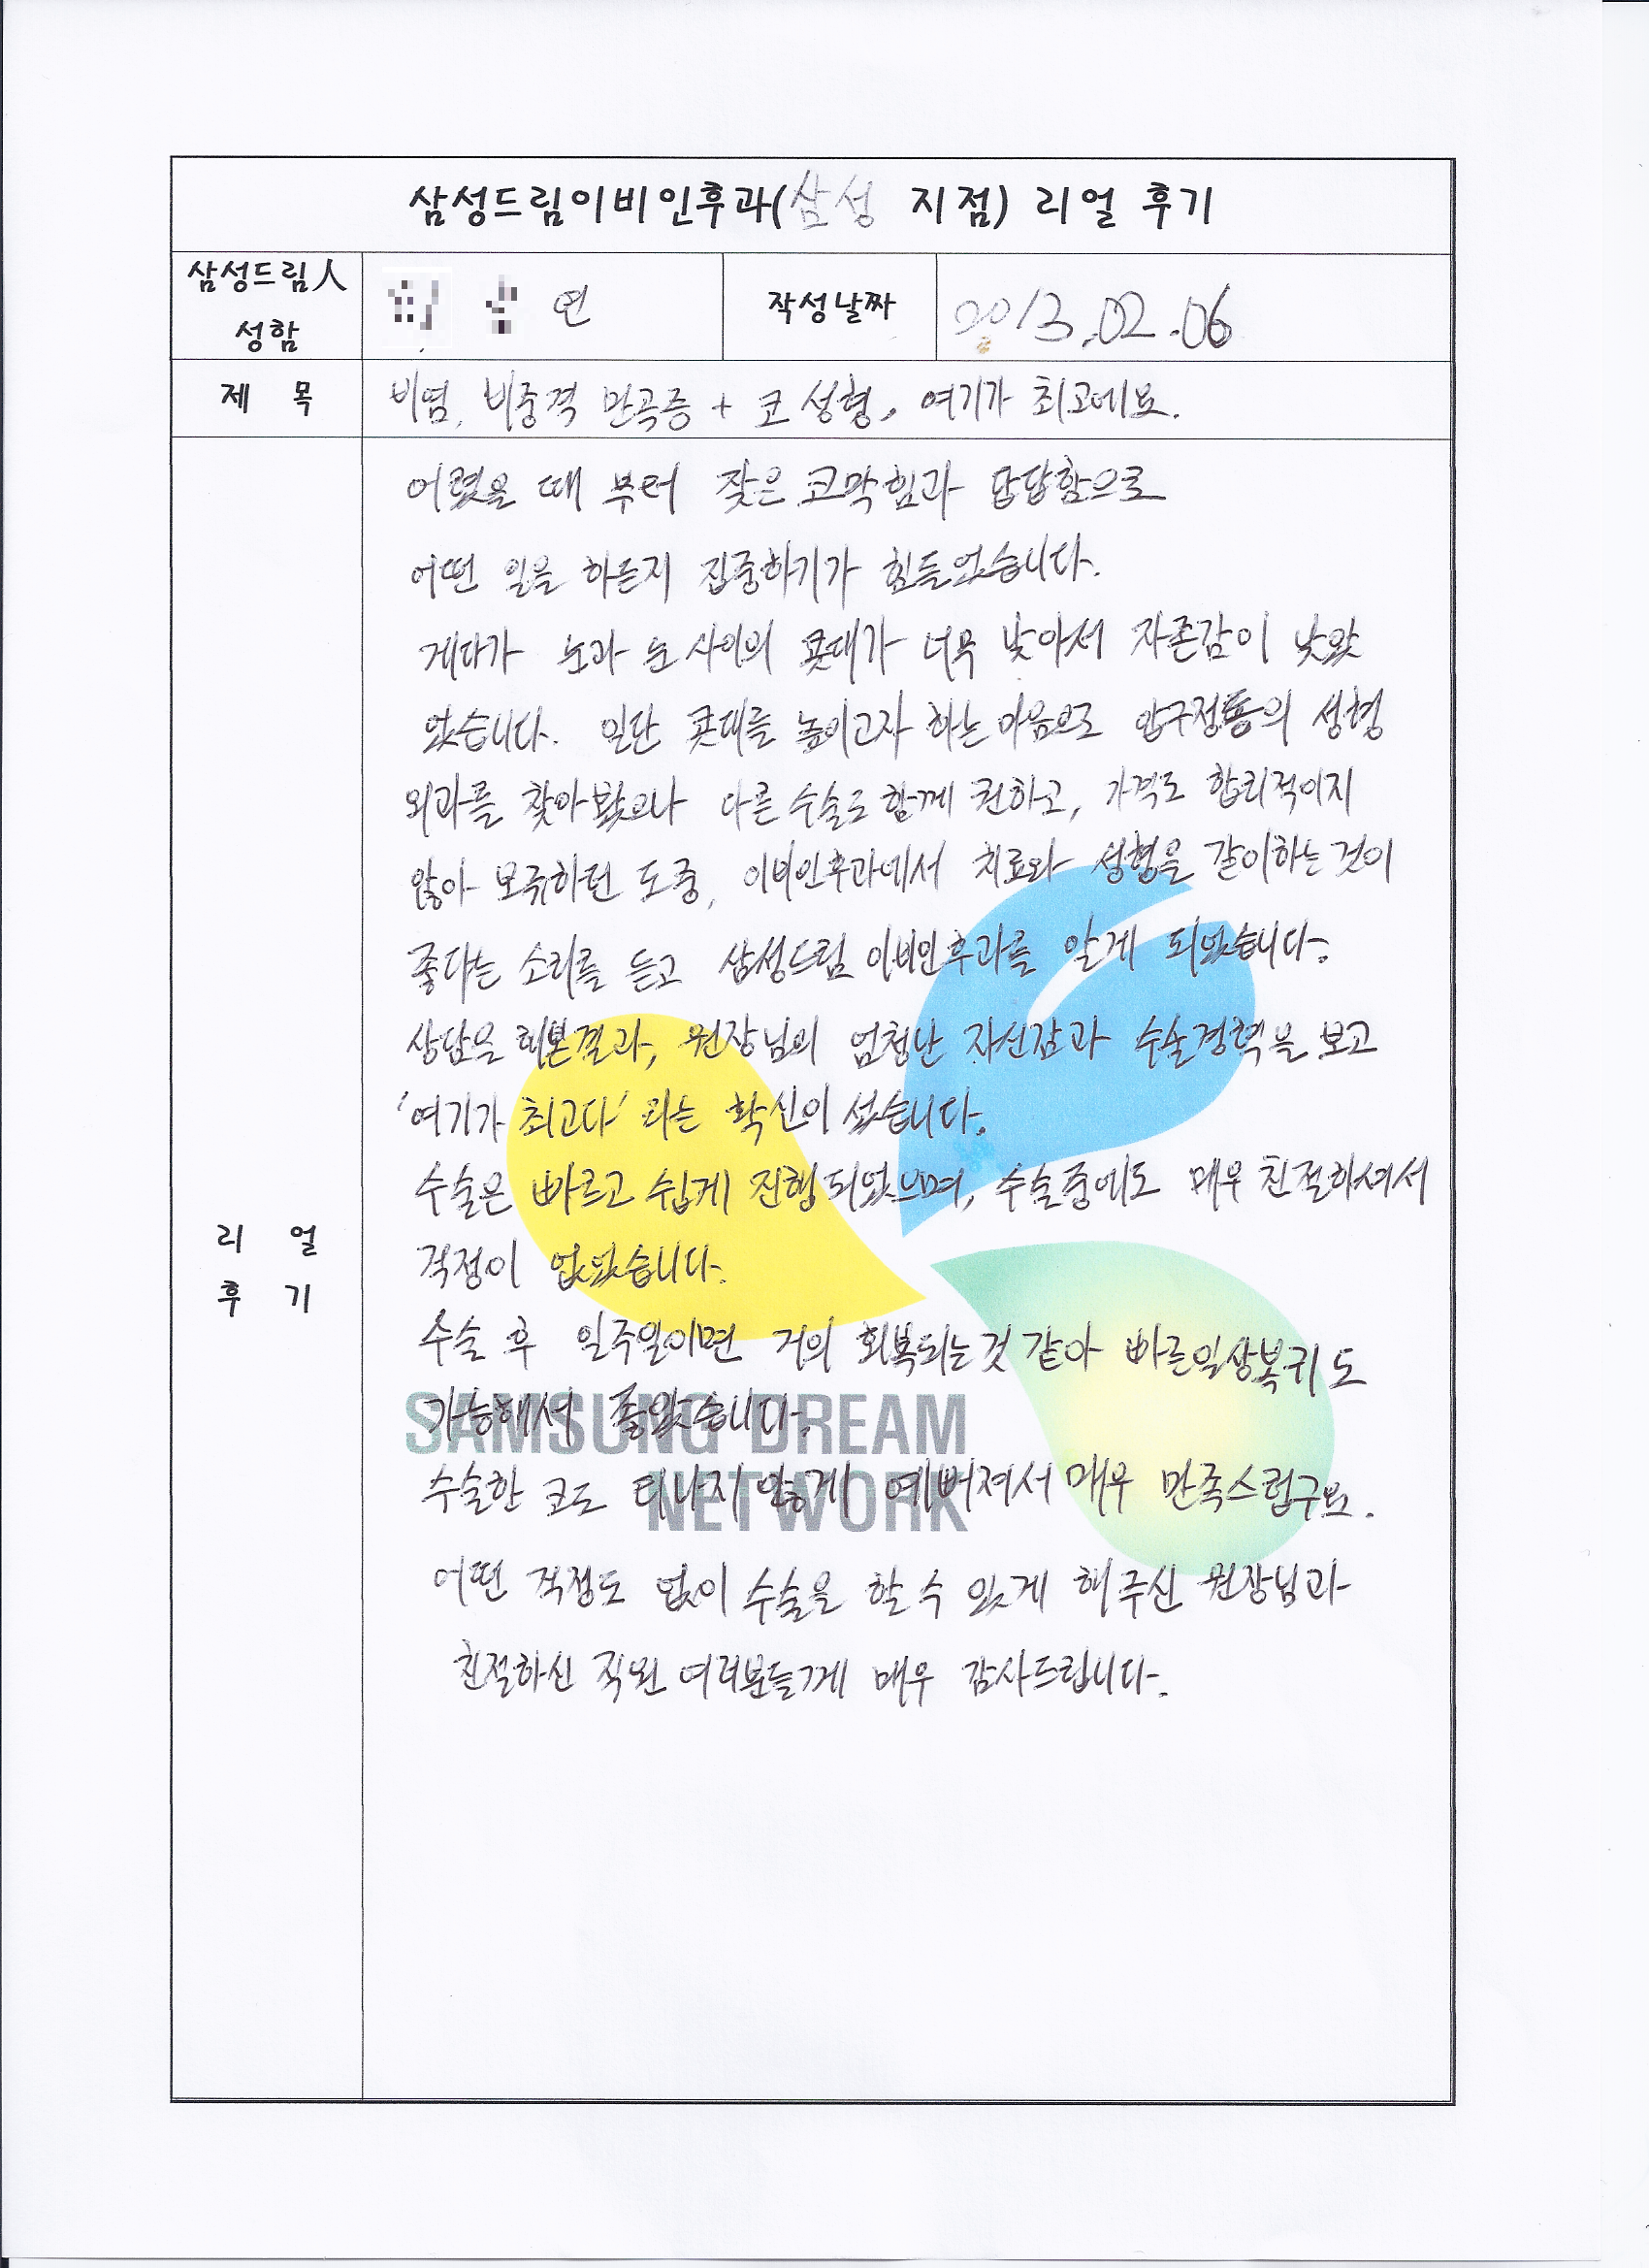 삼성드림이비인후과(삼성 지점) 리얼 후기
삼성드림人
성함
연
작성날짜
2013.02.06
제 목
비염, 비중격 만곡증 + 코 성형, 여기가 최고에요.
어렸을 때 부터 잦은 코막힘과 답답함으로
어떤 일을 하든지 집중하기가 힘들었습니다.
게다가 눈과 눈 사이의 콧대가 너무 낮아서 자존감이 낮았
었습니다. 일단 콧대를 높이고자 하는 마음으로 압구정동의 성형
외과를 찾아봤으나 다른 수술도 함께 권하고, 가격도 합리적이지
않아 모색하던 도중, 이비인후과에서 치료와 성형을 같이하는 것이
좋다는 소리를 듣고 삼성드림 이비인후과를 알게 되었습니다.
상담을 해본결과, 원장님의 엄청난 자신감과 수술경력을 보고
'여기가 최고다' 라는 확신이 섰습니다.
수술은 빠르고 쉽게 진행되었으며, 수술중에도 매우 친절하셔서
걱정이 없었습니다.
수술 후 일주일이면 거의 회복되는것 같아 빠른일상복귀도
가능해서 좋았습니다.
수술한 코도 티나지 않게 예뻐져서 매우 만족스럽구요.
어떤 걱정도 없이 수술을 할 수 있게 해주신 원장님과
친절하신 직원 여러분들께 매우 감사드립니다.
리 얼
후 기
SAMSUNG DREAM
NETWORK